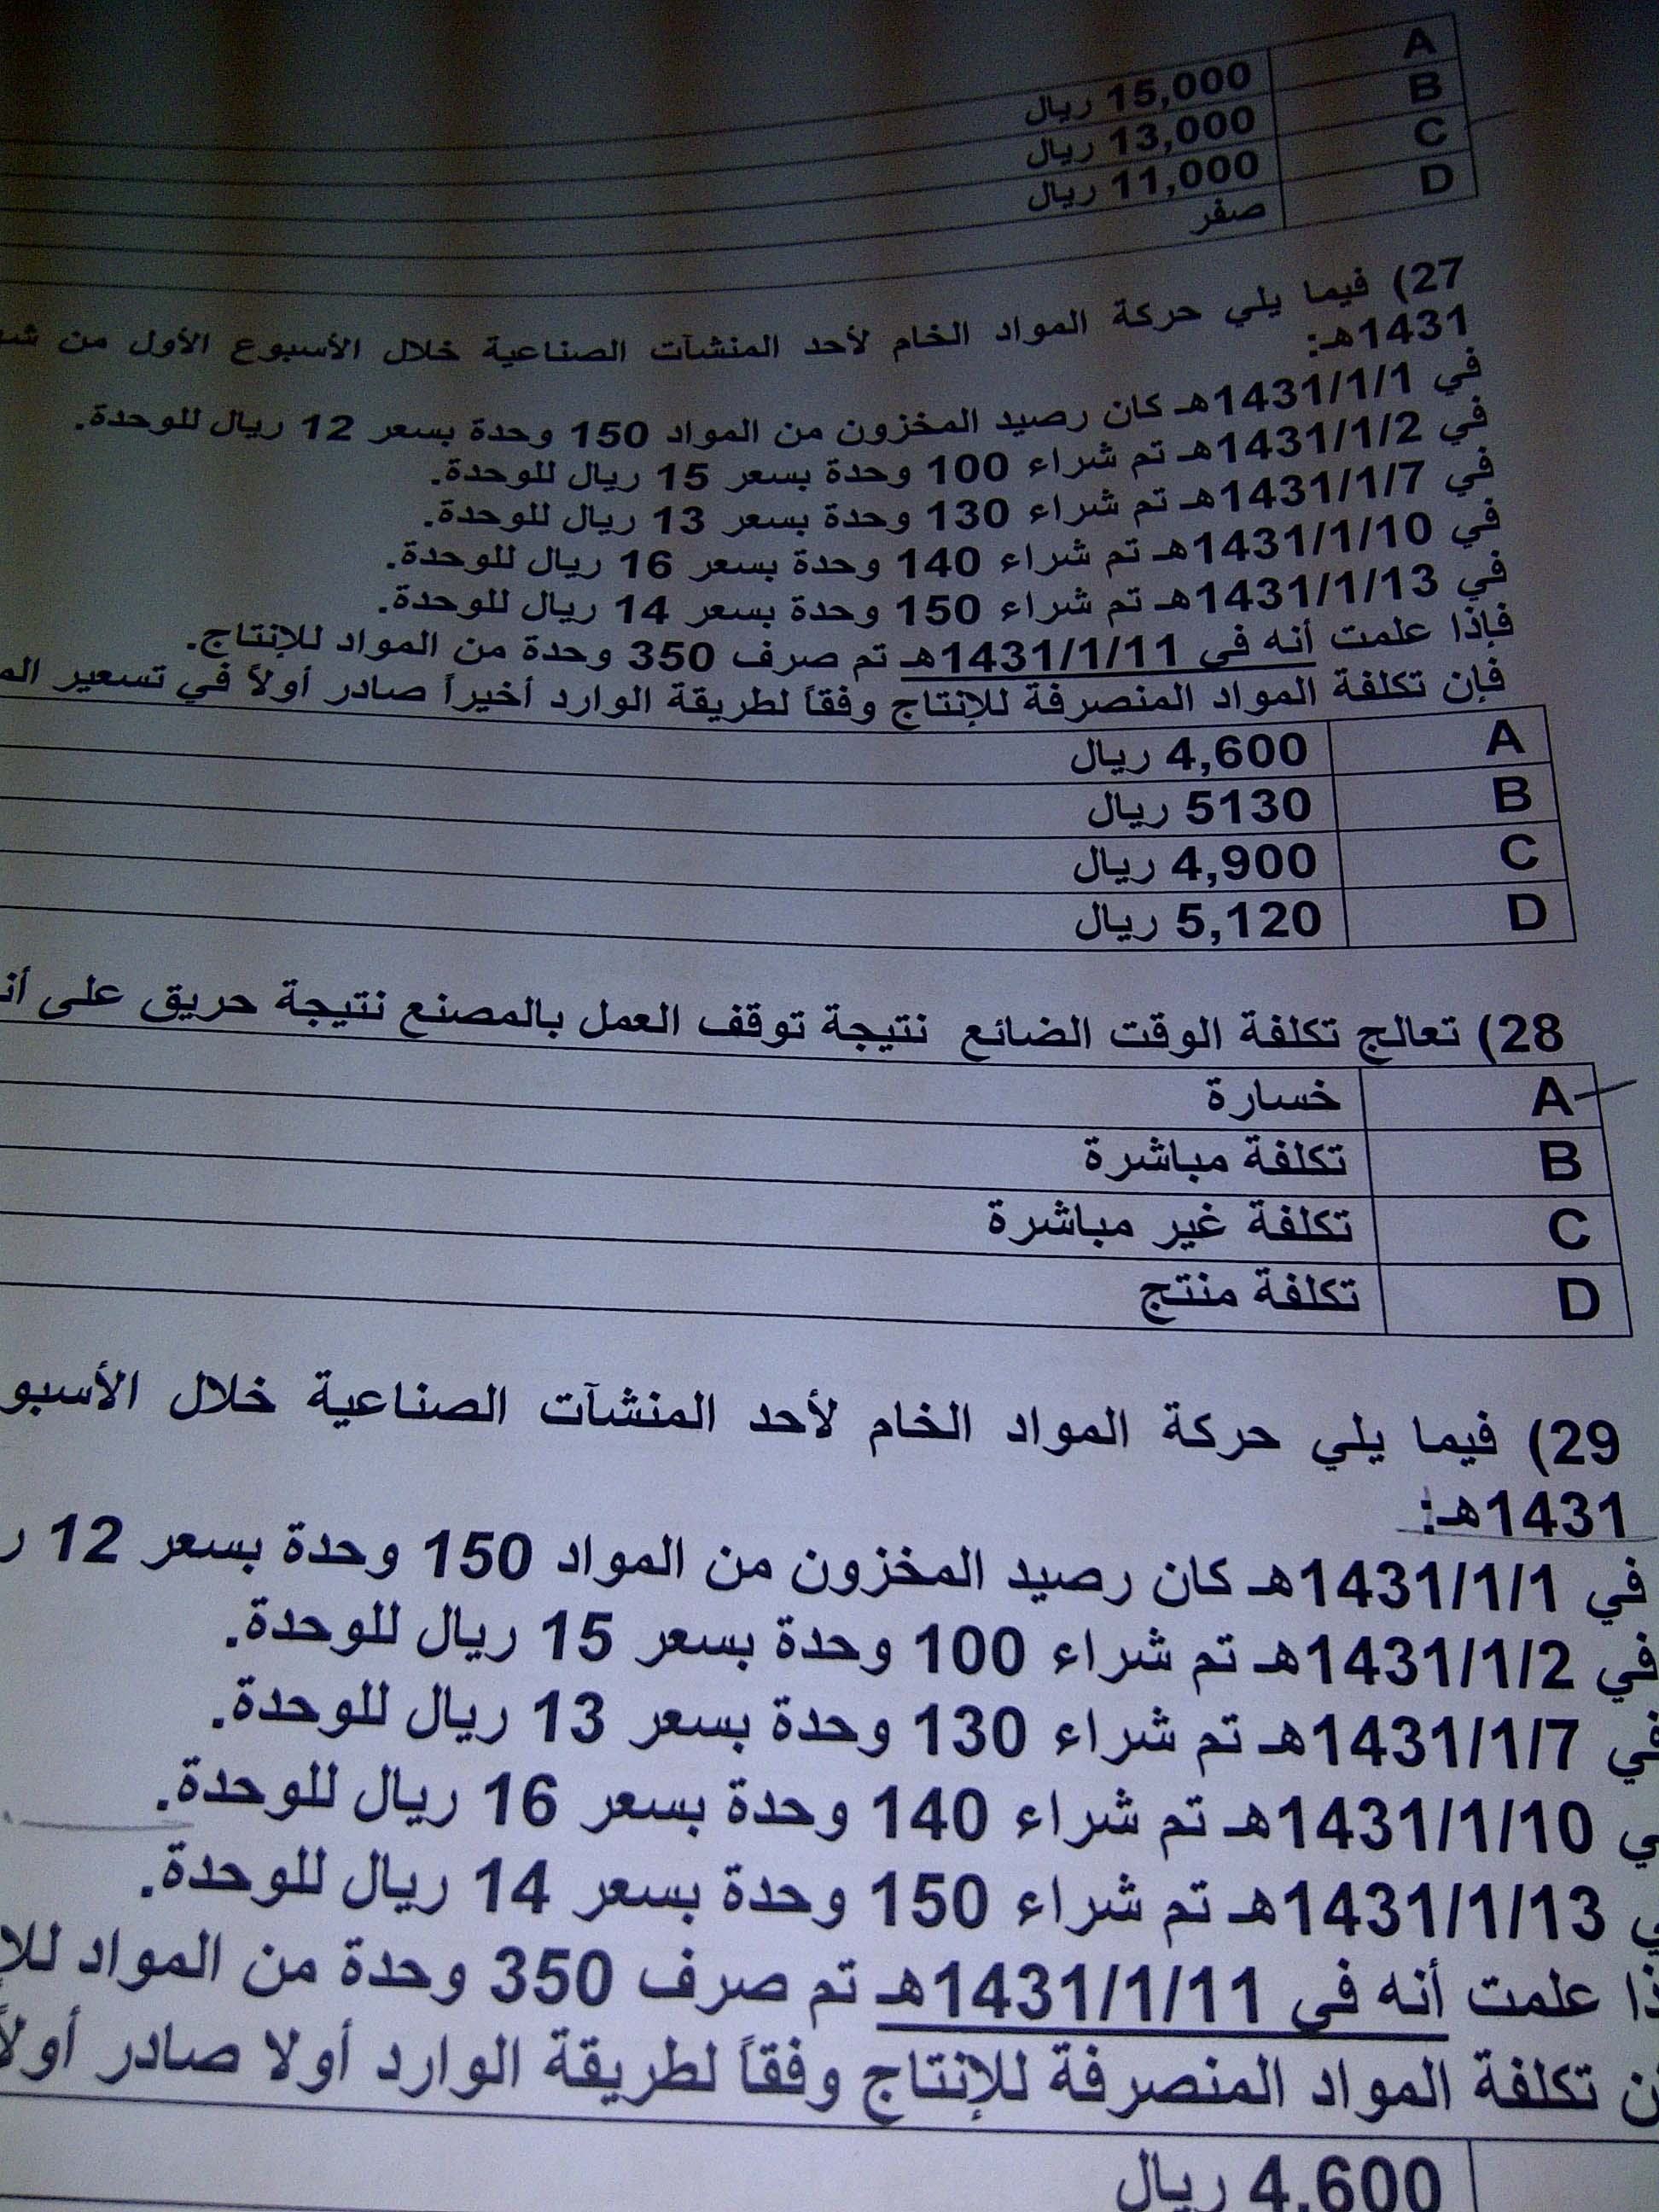 A 15,000 ريال
B 13,000 ريال
C 11,000 ريال
D صفر
27) فيما يلي حركة المواد الخام لأحد المنشآت الصناعية خلال الأسبوع الأول من
1431هـ:
في 1431/1/1هـ كان رصيد المخزون من المواد 150 وحدة بسعر 12 ريال للوحدة.
في 1431/1/2هـ تم شراء 100 وحدة بسعر 15 ريال للوحدة.
في 1431/1/7هـ تم شراء 130 وحدة بسعر 13 ريال للوحدة.
في 1431/1/10هـ تم شراء 140 وحدة بسعر 16 ريال للوحدة.
في 1431/1/13هـ تم شراء 150 وحدة بسعر 14 ريال للوحدة.
فإذا علمت أنه في 1431/1/11هـ تم صرف 350 وحدة من المواد للإنتاج.
فإن تكلفة المواد المنصرفة للإنتاج وفقاً لطريقة الوارد أخيراً صادر أولاً في تسعير
A 4,600 ريال
B 5130 ريال
C 4,900 ريال
D 5,120 ريال
28) تعالج تكلفة الوقت الضائع نتيجة توقف العمل بالمصنع نتيجة حريق على
A خسارة
B تكلفة مباشرة
C تكلفة غير مباشرة
D تكلفة منتج
29) فيما يلي حركة المواد الخام لأحد المنشآت الصناعية خلال
1431هـ:
في 1431/1/1هـ كان رصيد المخزون من المواد 150 وحدة بسعر 12
في 1431/1/2هـ تم شراء 100 وحدة بسعر 15 ريال للوحدة.
في 1431/1/7هـ تم شراء 130 وحدة بسعر 13 ريال للوحدة.
1431/1/10هـ تم شراء 140 وحدة بسعر 16 ريال للوحدة.
1431/1/13هـ تم شراء 150 وحدة بسعر 14 ريال للوحدة.
علمت أنه في 1431/1/11هـ تم صرف 350 وحدة من المواد
تكلفة المواد المنصرفة للإنتاج وفقاً لطريقة الوارد أولا صادر أولاً
4,600 ريال